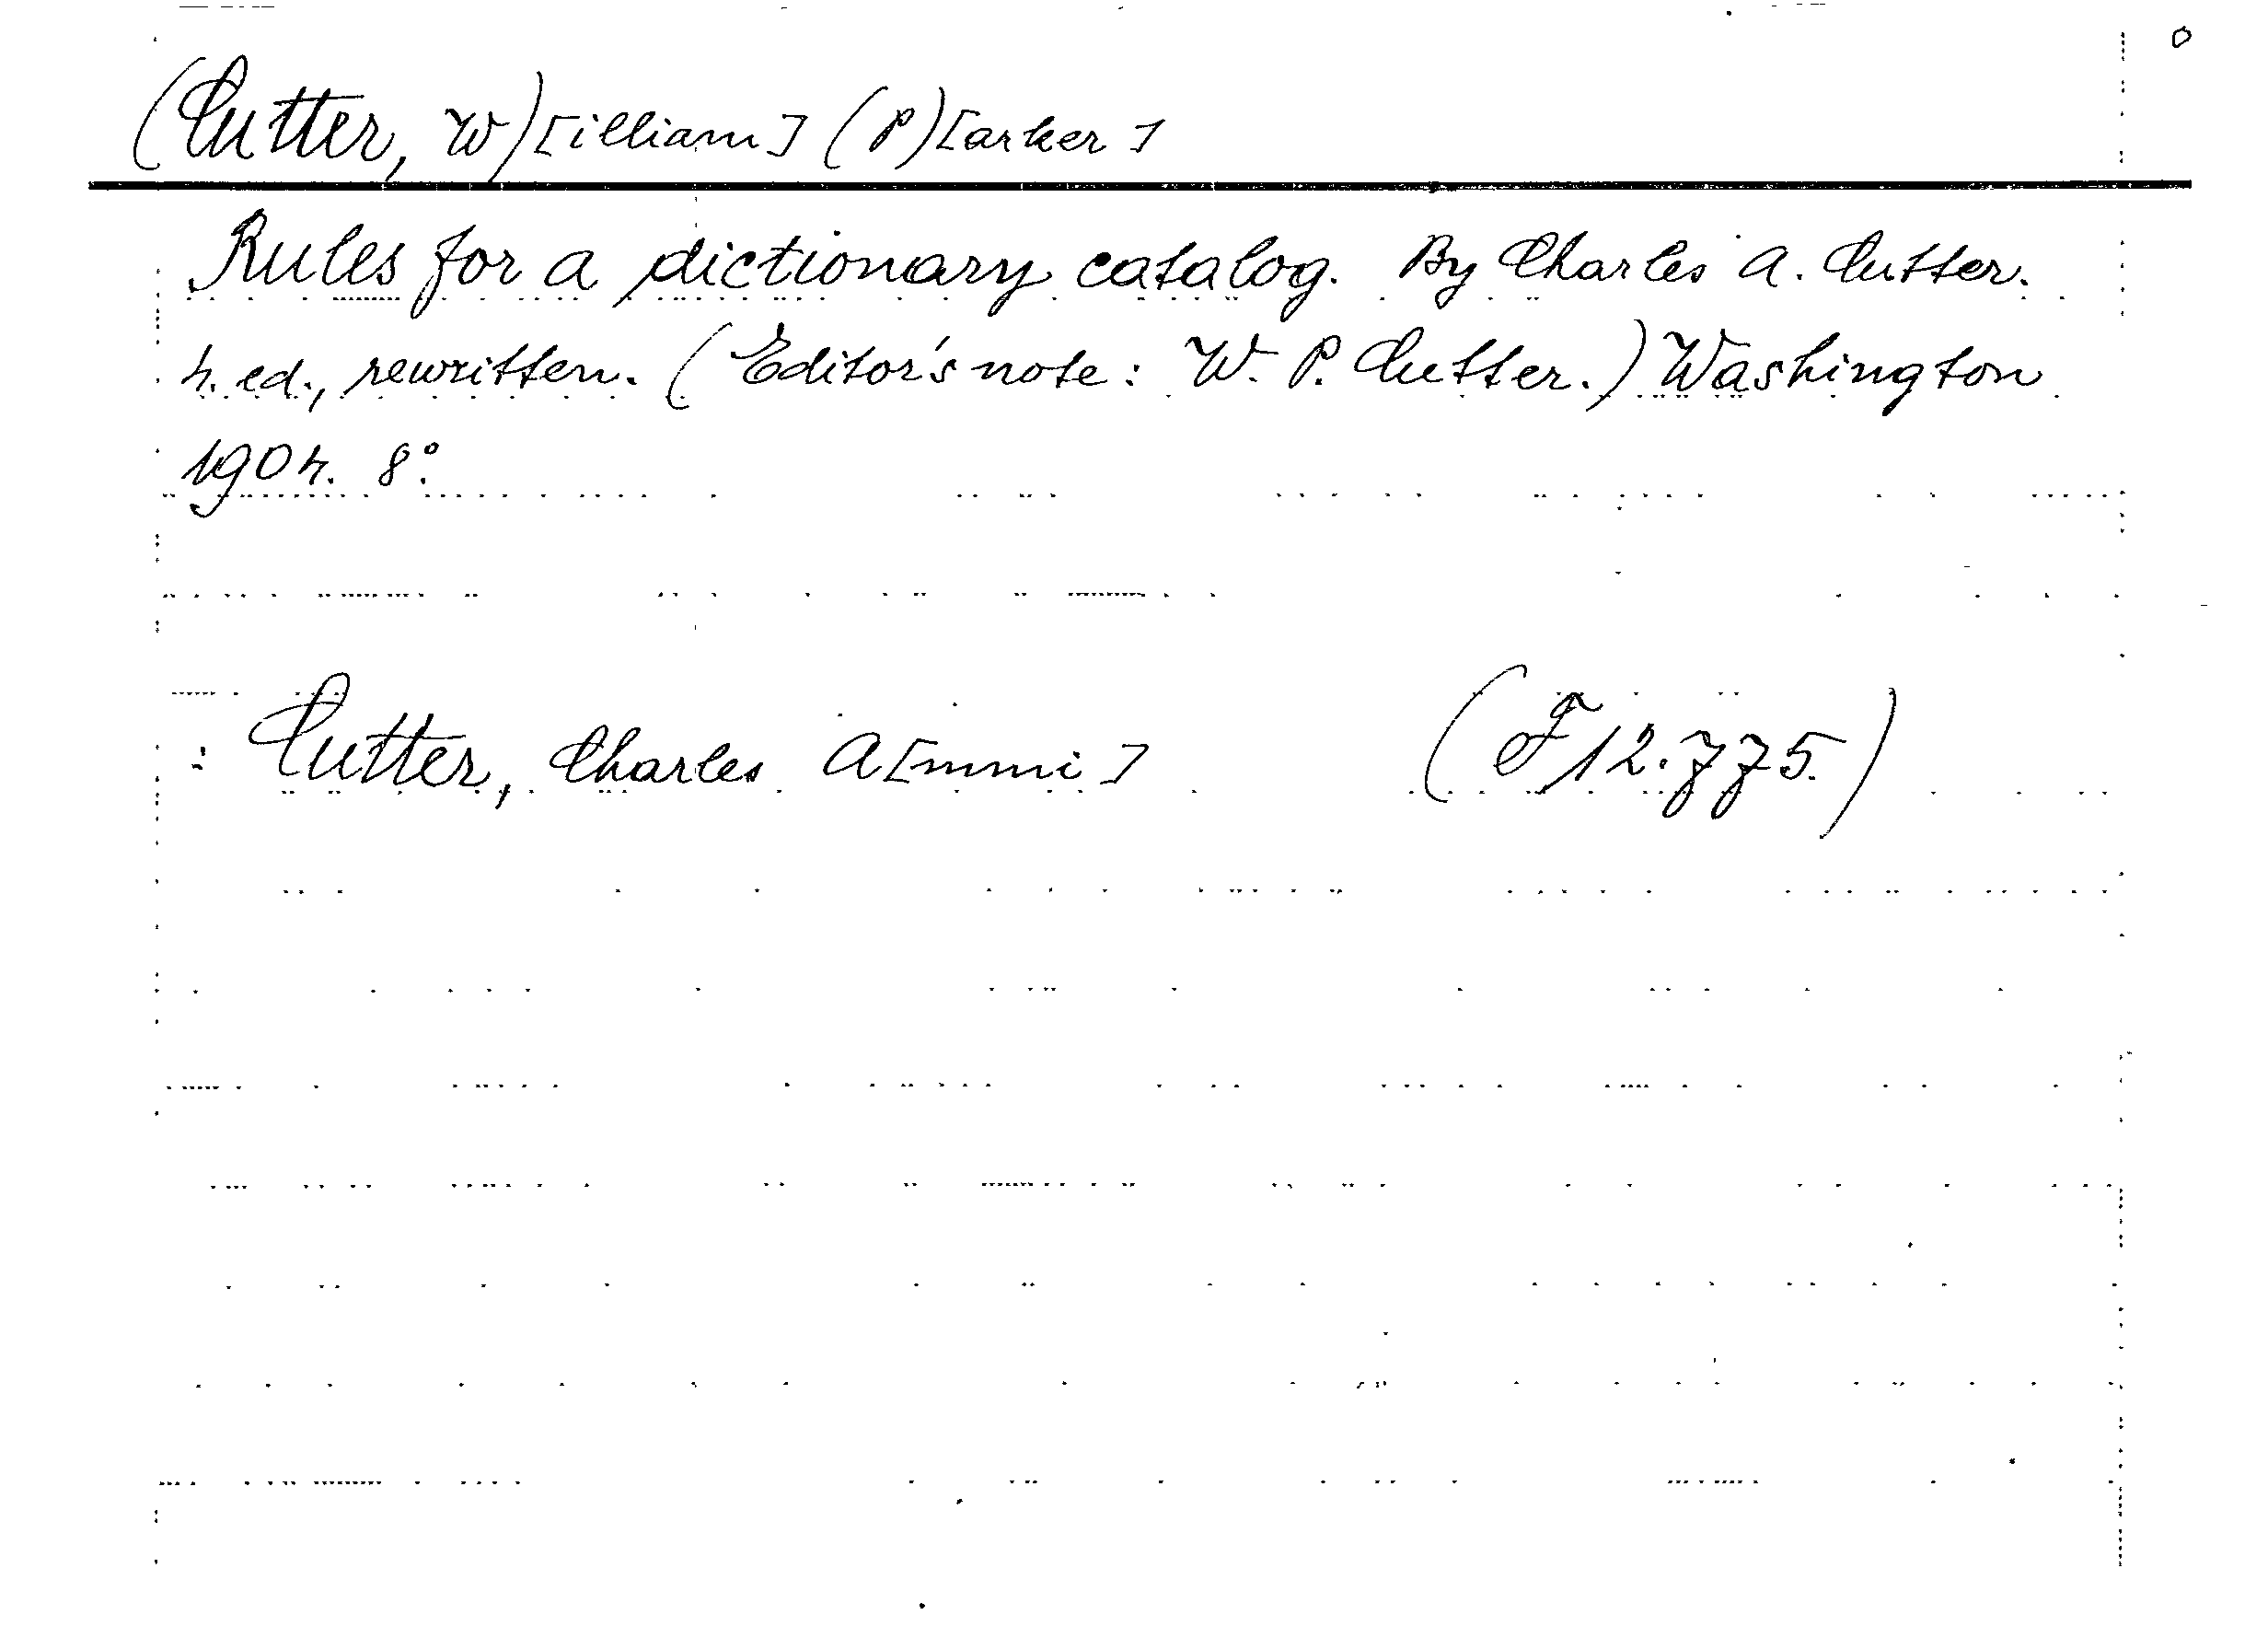 (Cutter, W)[illiam] (P)[arker]
Rules for a dictionary catalog. By Charles A. Cutter.
4. ed., rewritten. (Editor's note: W. P. Cutter.) Washington
1904. 8°.
: Cutter, Charles A[mmi] (F12.775.)